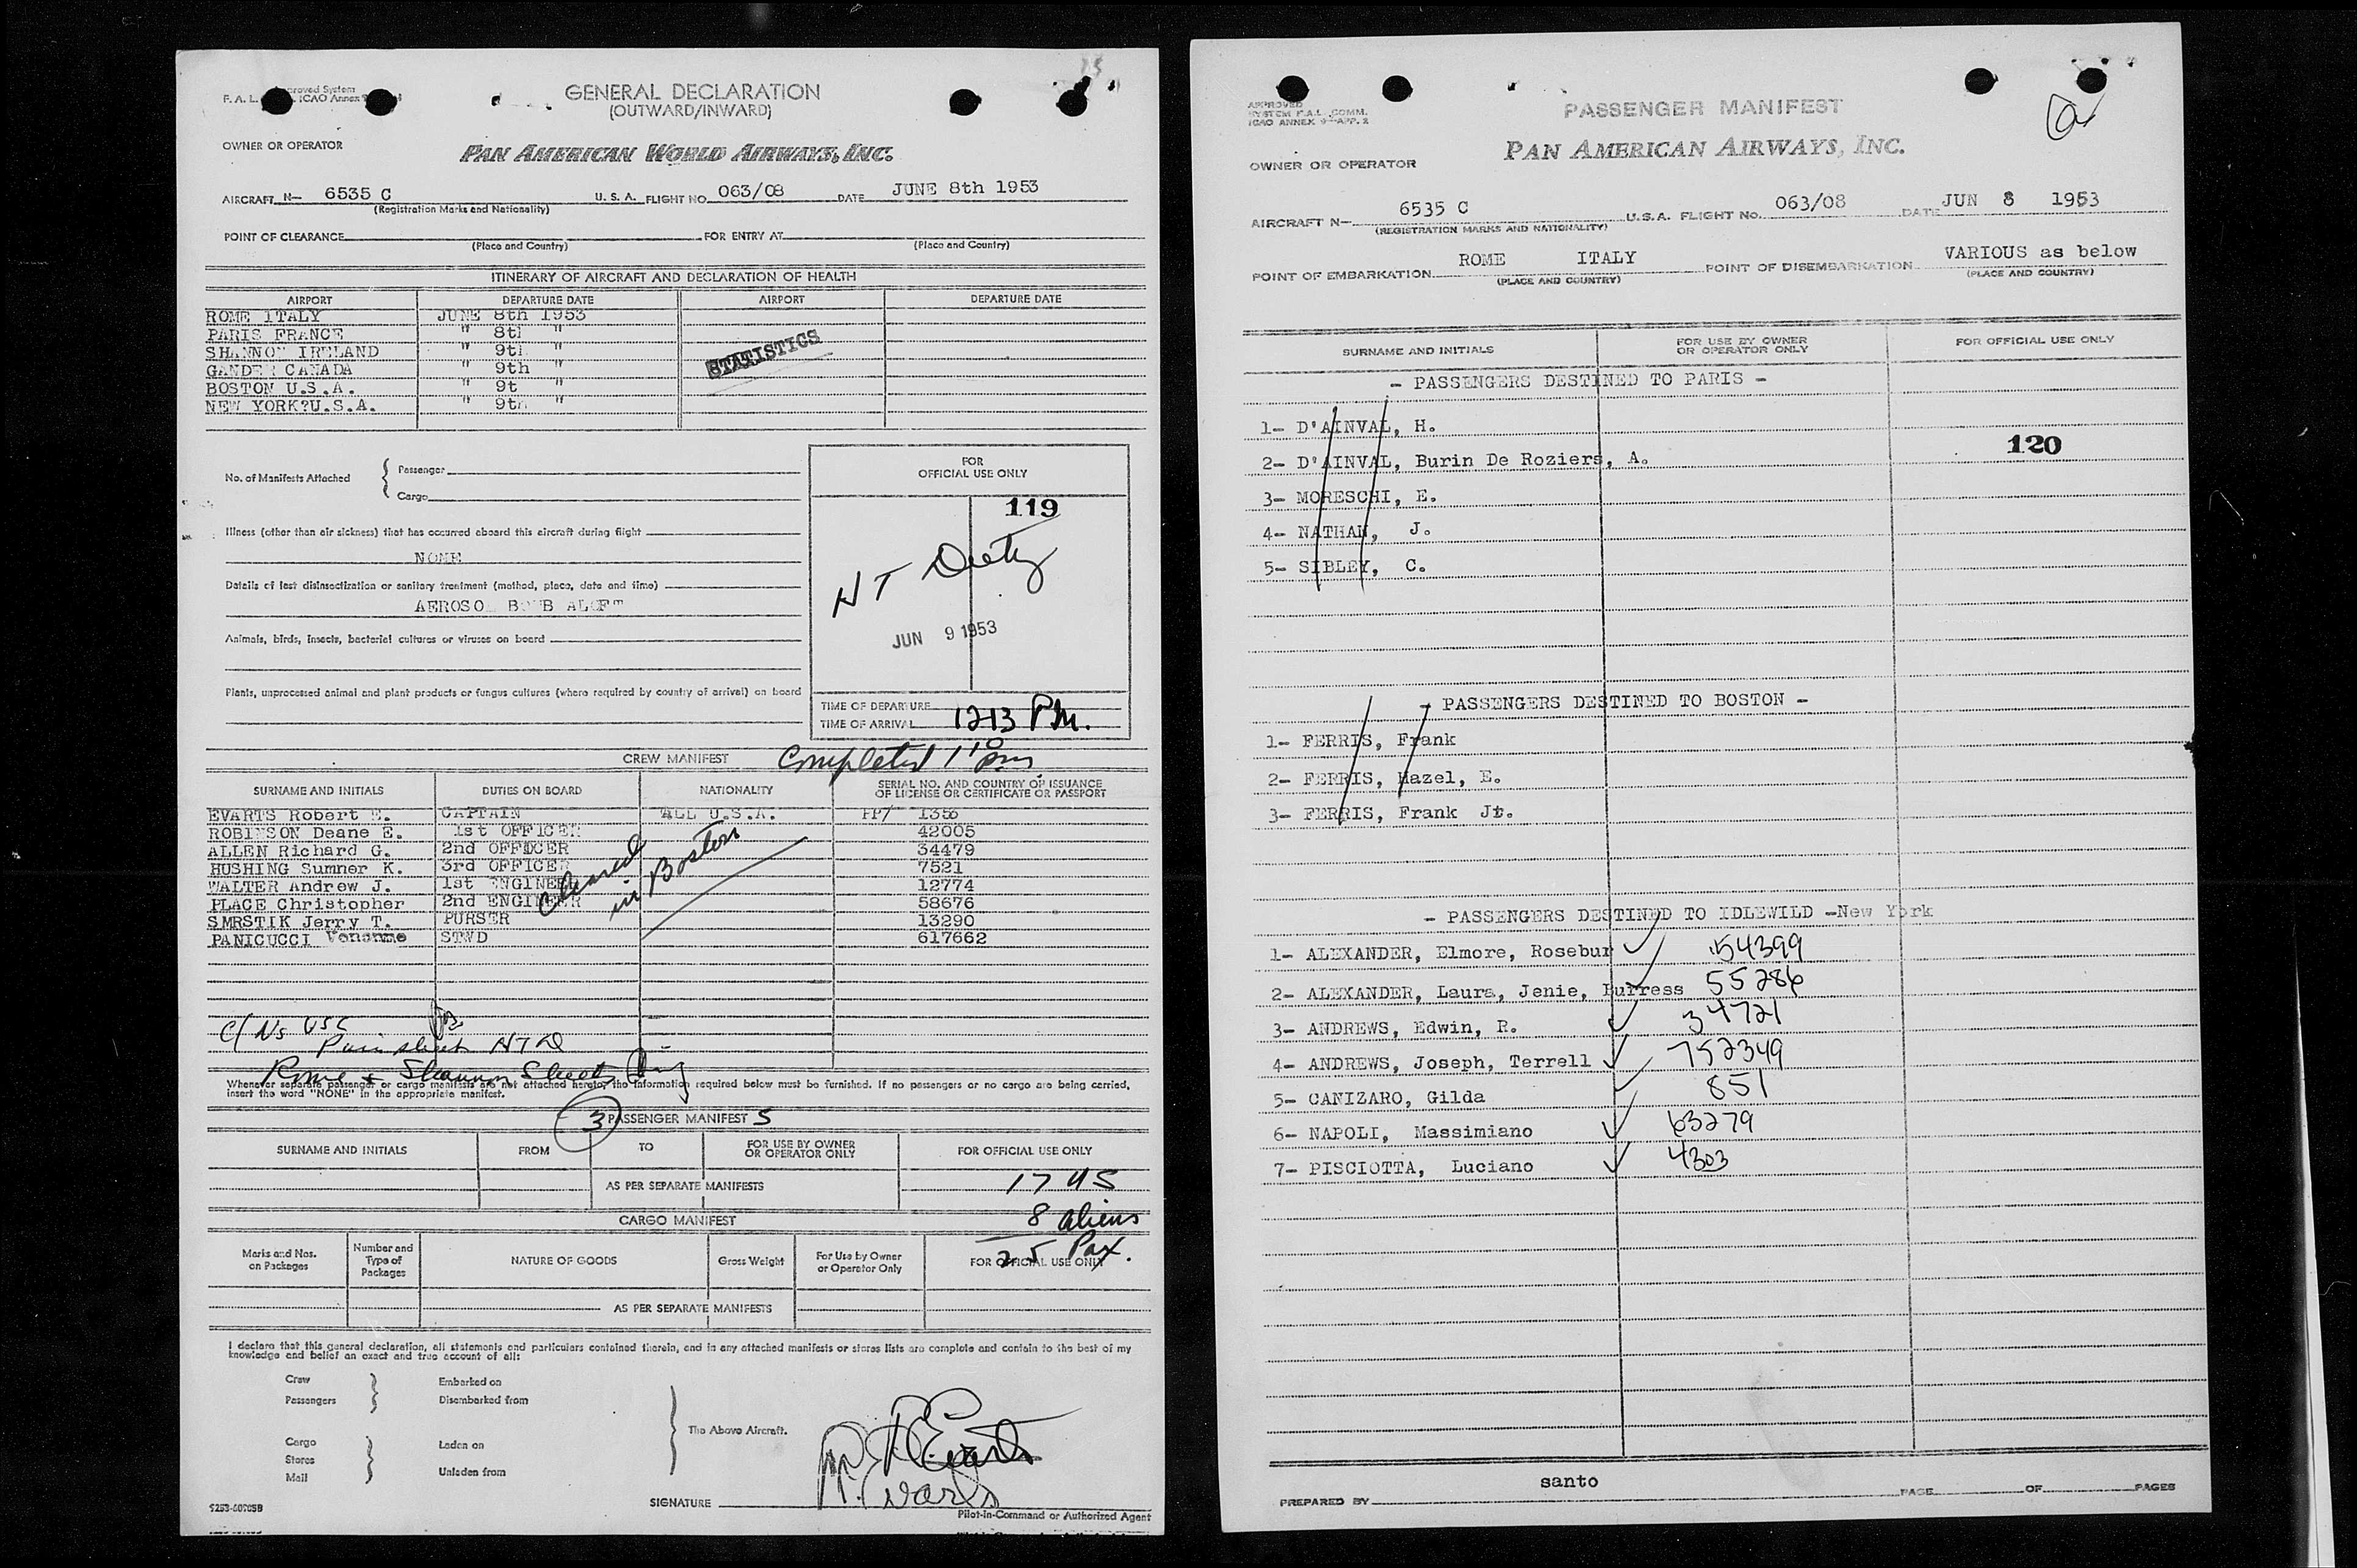 GENERAL DECLARATION
(OUTWARD/INWARD)
OWNER OR OPERATOR
PAN AMERICAN WORLD AIRWAYS, INC.
AIRCRAFT N— 6535 C U. S. A. FLIGHT NO. 063/08 DATE JUNE 8th 1953
(Registration Marks and Nationality)
POINT OF CLEARANCE FOR ENTRY AT
(Place and Country) (Place and Country)
ITINERARY OF AIRCRAFT AND DECLARATION OF HEALTH
AIRPORT DEPARTURE DATE AIRPORT DEPARTURE DATE
ROME ITALY JUNE 8th 1953
PARIS FRANCE " 8th "
SHANNON IRELAND " 9th "
GANDER CANADA " 9th "
BOSTON U.S.A. " 9t "
NEW YORK?U.S.A. " 9th "
STATISTICS
No. of Manifests Attached { Passenger
Cargo
FOR
OFFICIAL USE ONLY
119
Illness (other than air sickness) that has occurred aboard this aircraft during flight
NONE
Details of last disinsectization or sanitary treatment (method, place, date and time)
AEROSOL BOMB ALOFT
Animals, birds, insects, bacterial cultures or viruses on board
JUN 9 1953
Plants, unprocessed animal and plant products or fungus cultures (where required by country of arrival) on board
TIME OF DEPARTURE
TIME OF ARRIVAL 1213 P.M.
CREW MANIFEST Completed 1 10 pm
SURNAME AND INITIALS DUTIES ON BOARD NATIONALITY SERIAL NO. AND COUNTRY OF ISSUANCE
OF LICENSE OR CERTIFICATE OR PASSPORT
EVARTS Robert E. CAPTAIN ALL U.S.A. PP/ 1356
ROBINSON Deane E. 1st OFFICER 42005
ALLEN Richard G. 2nd OFFICER 34479
HUSHING Sumner K. 3rd OFFICER 7521
WALTER Andrew J. 1st ENGINEER 12774
PLACE Christopher 2nd ENGINEER 58676
SMRSTIK Jerry T. PURSER 13290
PANICUCCI STWD 617662
Cleared
in Boston
C/Ns USC
Rome + Shannon Sheets
Whenever separate passenger or cargo manifests are not attached hereto, the information required below must be furnished. If no passengers or no cargo are being carried,
insert the word "NONE" in the appropriate manifest.
3 PASSENGER MANIFEST S
SURNAME AND INITIALS FROM TO FOR USE BY OWNER
OR OPERATOR ONLY FOR OFFICIAL USE ONLY
AS PER SEPARATE MANIFESTS 17 US
CARGO MANIFEST 8 aliens
25 Pax.
Marks and Nos.
on Packages Number and
Type of
Packages NATURE OF GOODS Gross Weight For Use by Owner
or Operator Only FOR OFFICIAL USE ONLY
AS PER SEPARATE MANIFESTS
I declare that this general declaration, all statements and particulars contained therein, and in any attached manifests or stores lists are complete and contain to the best of my
knowledge and belief an exact and true account of all:
Crew Embarked on
Passengers Disembarked from
The Above Aircraft.
Cargo Laden on
Stores
Mail Unladen from
R. D. Evarts
R. Evarts
SIGNATURE
Pilot-in-Command or Authorized Agent
APPROVED
SYSTEM F.A.L. COMM.
ICAO ANNEX 9—APP. 2
PASSENGER MANIFEST
OWNER OR OPERATOR
PAN AMERICAN AIRWAYS, INC.
AIRCRAFT N— 6535 C U.S.A. FLIGHT No. 063/08 DATE JUN 8 1953
(REGISTRATION MARKS AND NATIONALITY)
POINT OF EMBARKATION ROME ITALY POINT OF DISEMBARKATION VARIOUS as below
(PLACE AND COUNTRY) (PLACE AND COUNTRY)
SURNAME AND INITIALS FOR USE BY OWNER
OR OPERATOR ONLY FOR OFFICIAL USE ONLY
- PASSENGERS DESTINED TO PARIS -
1- D'AINVAL, H.
120
2- D'AINVAL, Burin De Roziers, A.
3- MORESCHI, E.
4- NATHAN, J.
5- SIBLEY, C.
- PASSENGERS DESTINED TO BOSTON -
1- FERRIS, Frank
2- FERRIS, Hazel, E.
3- FERRIS, Frank Jr.
- PASSENGERS DESTINED TO IDLEWILD -New York
1- ALEXANDER, Elmore, Rosebur 54399
2- ALEXANDER, Laura, Jenie, Burress 55286
3- ANDREWS, Edwin, R. 34721
4- ANDREWS, Joseph, Terrell 752349
5- CANIZARO, Gilda 851
6- NAPOLI, Massimiano 63279
7- PISCIOTTA, Luciano 4303
santo
PREPARED BY PAGE OF PAGES